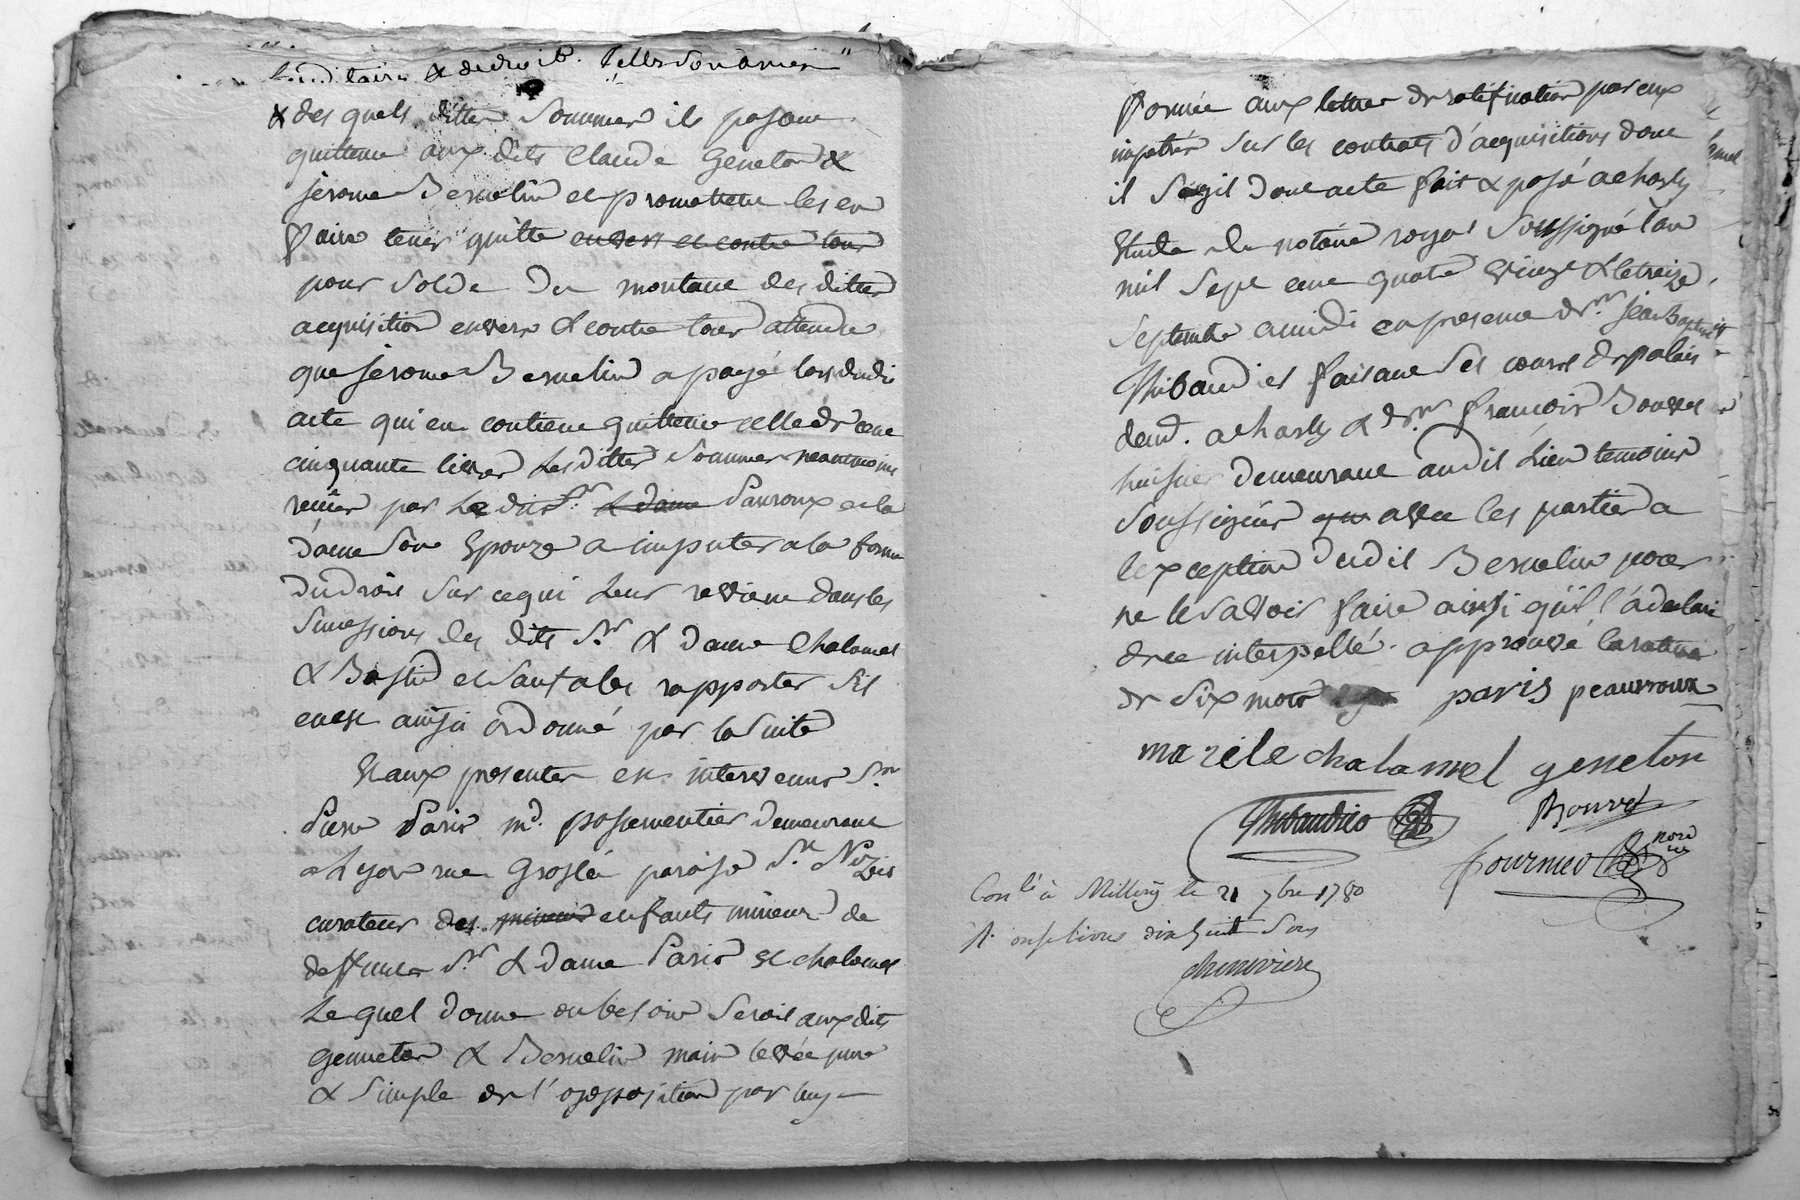 & de droit. Telles sommes
& des quels dittes Sommes ils passent
quittence aux dits Claude Geneton &
jerome Bernelin et promettent les en
faire tenir quitte envers et contre tous
pour Solde du montant des dittes
acquisition envers & contre tous attendu
que jerome Bernelin a payé lors dudit
acte qui en contient quittence celle de cent
cinquante livres Les dittes Sommes neantmoins
par Le dit Sr. & dame Pauroux et la
dame Son Epouze a imputer a la forme
du droit Sur ce qui Leur revient dans les
Sucessions des dits Sr & dame Chalamel
& et Sauf a les rapporter S'il
en est ainsi ordonné par la Suite
Et aux presentes est intervenu Sr.
Pierre Paris md. passementier demeurant
a Lyon rue Groslée paroisse St Nizier
curateur des mineurs enfants mineurs de
deffunts Sr & dame Paris et chalamel
Le quel donne en besoin Seroit aux dits
Genneton & Bernelin main levée pure
& Simple de l'opposition par luy
formée aux lettres de ratification par eux
impetrés Sur les contrats d'acquisitions dont
il S'agit dont acte fait & passé a charly
Etude du notaire royal Soussigné l'an
mil Sept cent quatre vingt & le treize
Septembre a midi en presence de Sr. Jean Baptiste
Thibaudier faisant Ses cours de palais
demt. a charly & de Sr. françois Bouvet
huissier demeurant audit Lieu temoins
Soussignés avec les parties a
l'exception dudit Bernelin pour
ne le Savoir faire ainsi qu'il l'a declaré
de ce interpellé. approuvé la rature
de Six mots paris peaurroux
marie le chalamel genneton
Thibaudier Bouvet
fournier nore
Conlé à Millery le 21 7bre 1780
R. onze livres dix huit Sous
cheneviere